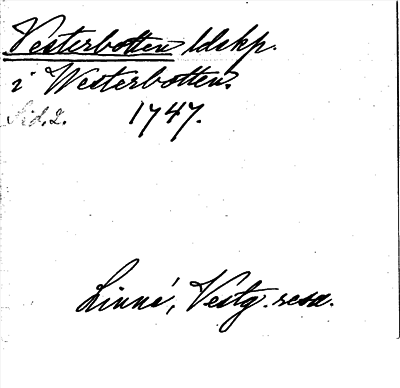 Vesterbotten ldskp.
i Westerbotten.
Sid. 2. 1747.
Linné, Vestg. resa.